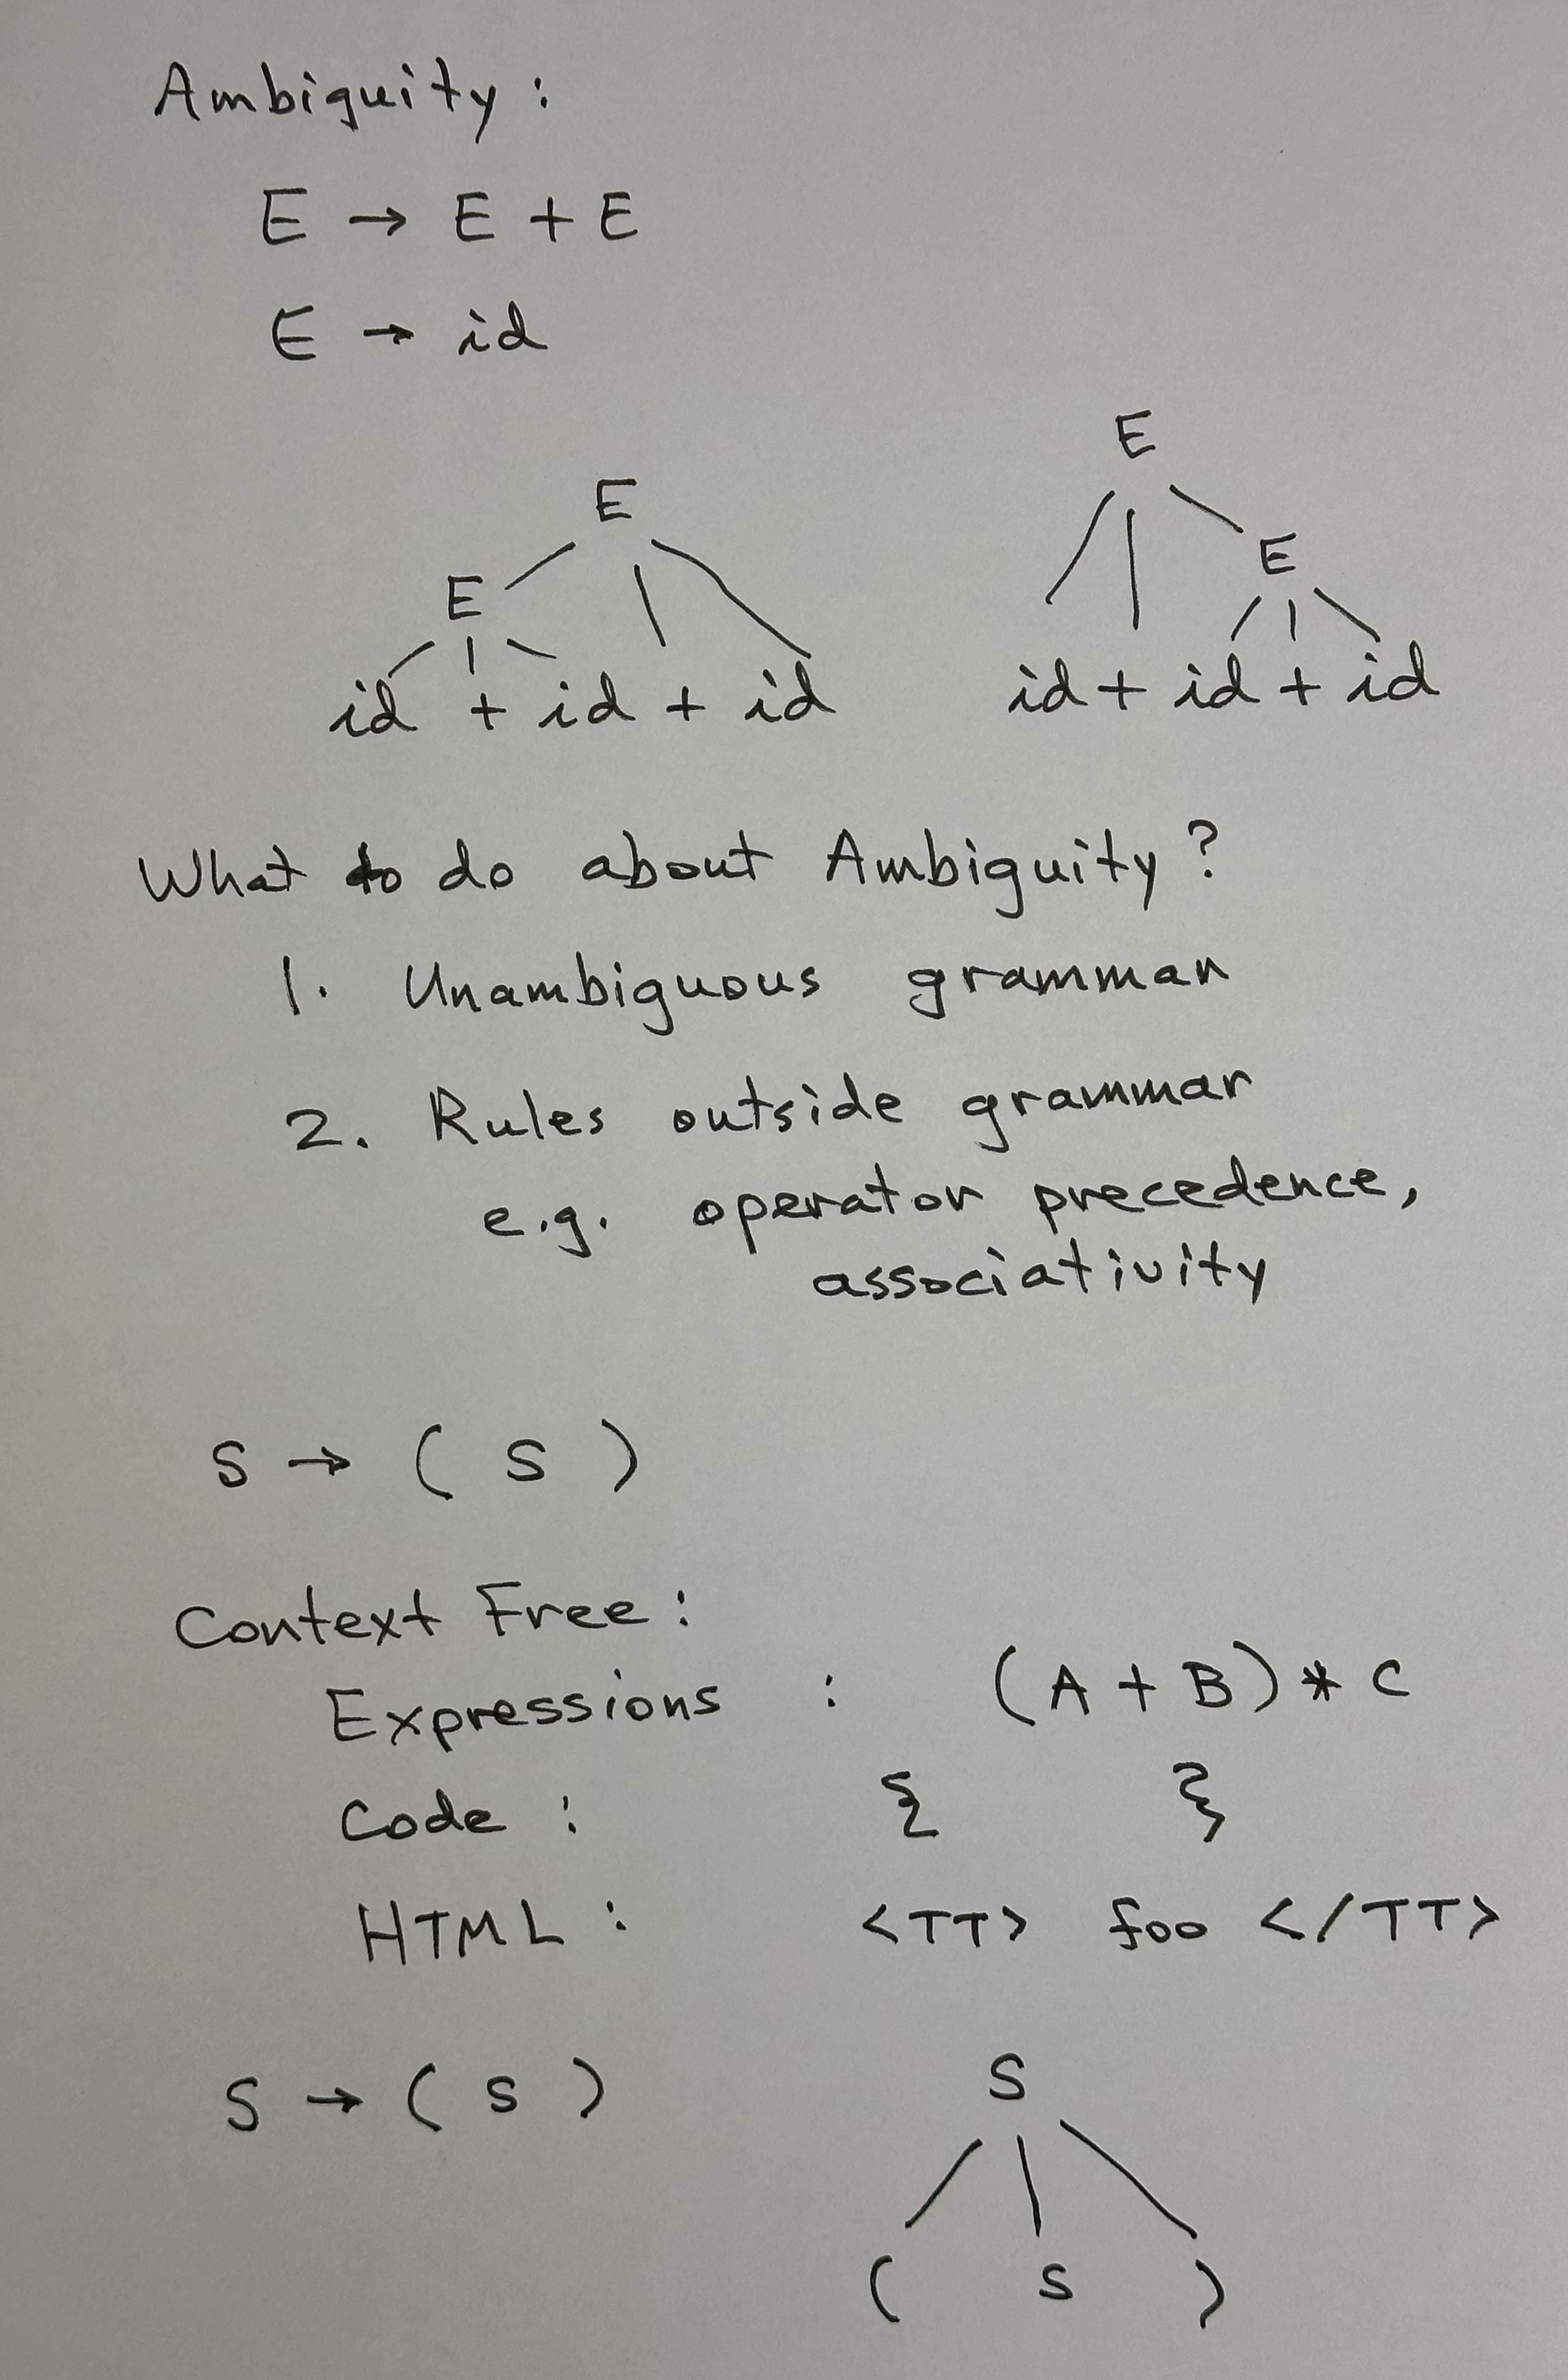 Ambiguity :
E → E + E
E → id
E
E
E
E
id + id + id
id + id + id
What to do about Ambiguity ?
1. Unambiguous grammar
2. Rules outside grammar
e.g. operator precedence,
associativity
S → ( S )
Context Free :
Expressions : (A + B) * C
Code : { }
HTML : <TT> foo </TT>
S → ( S )
S
( S )